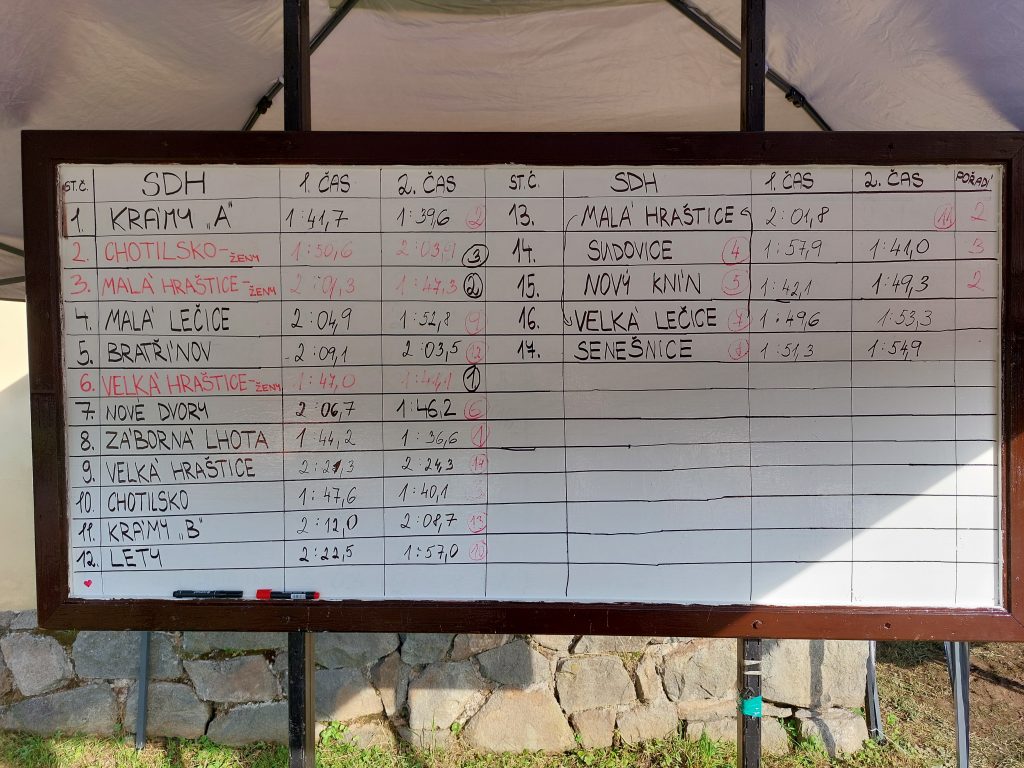 ST.Č. SDH 1. ČAS 2. ČAS
1. KRÁMY „A" 1:41,7 1:39,6 2
2. CHOTILSKO-ŽENY 1:50,6 2:03,9 3
3. MALÁ HRAŠTICE-ŽENY 2:01,3 1:47,3 2
4. MALÁ LEČICE 2:04,9 1:52,8 9
5. BRATŘÍNOV 2:09,1 2:03,5 12
6. VELKÁ HRAŠTICE-ŽENY 1:47,0 1:44,1 1
7. NOVÉ DVORY 2:06,7 1:46,2 6
8. ZÁBORNÁ LHOTA 1:44,2 1:36,6 1
9. VELKÁ HRAŠTICE 2:21,3 2:24,3 14
10. CHOTILSKO 1:47,6 1:40,1 3
11. KRÁMY „B" 2:12,0 2:08,7 13
12. LETY 2:22,5 1:57,0 10
ST.Č. SDH 1. ČAS 2. ČAS POŘADÍ
13. MALÁ HRAŠTICE 2:01,8 11 2
14. SUDOVICE 4 1:57,9 1:41,0 3
15. NOVÝ KNÍN 5 1:42,1 1:49,3 2
16. VELKÁ LEČICE 7 1:49,6 1:53,3
17. SENEŠNICE 8 1:51,3 1:54,9